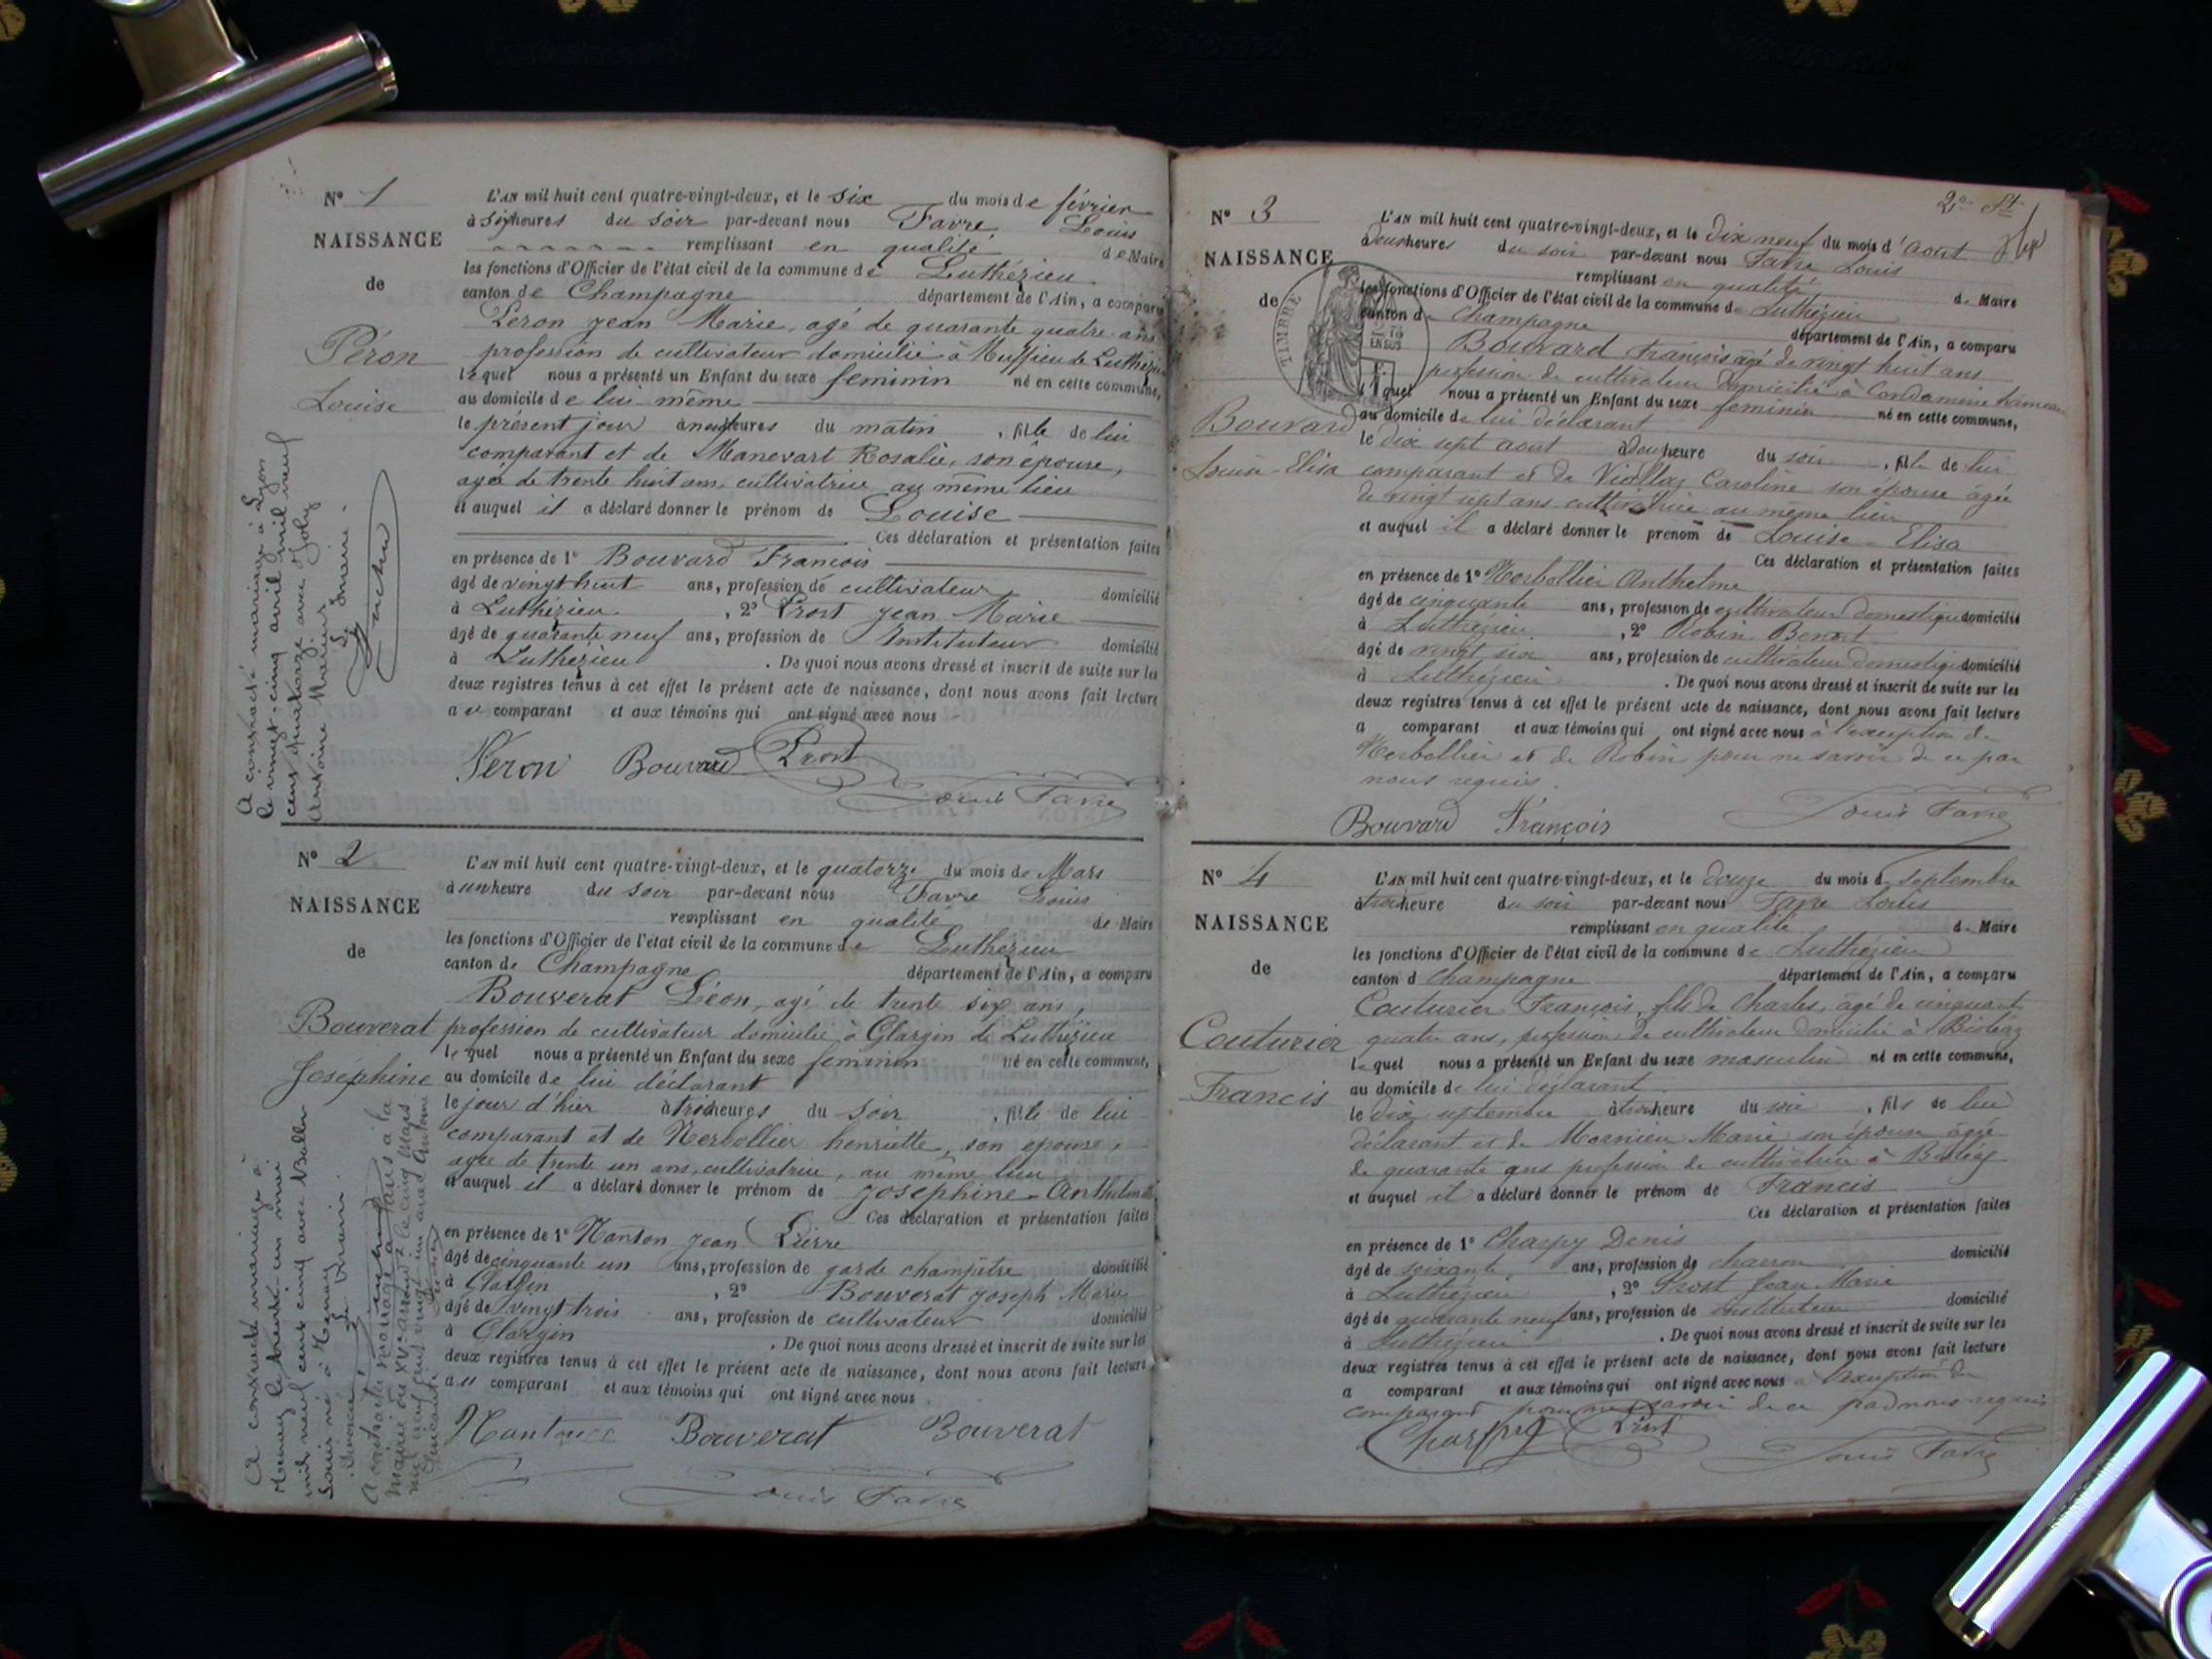 N° 1
NAISSANCE
de
Péron
Louise
L'AN mil huit cent quatre-vingt-deux, et le six du mois de février
à six heures du soir par-devant nous Favre Louis
remplissant en qualité de Maire
les fonctions d'Officier de l'état civil de la commune de Luthézieu
canton de Champagne département de l'Ain, a comparu
Péron Jean Marie, agé de quarante quatre ans
profession de cultivateur domicilié à Muffieu de Luthézieu
lequel nous a présenté un Enfant du sexe feminin né en cette commune,
au domicile de lui-même
le présent jour à neuf heures du matin , fille de lui
comparant et de Manevart Rosalie, son épouse,
agée de trente huit ans, cultivatrice au même lieu
et auquel il a déclaré donner le prénom de Louise
Ces déclaration et présentation faites
en présence de 1° Bouvard François
âgé de vingt huit ans, profession de cultivateur domicilié
à Luthézieu , 2° Prost Jean Marie
âgé de quarante neuf ans, profession de Instituteur domicilié
à Luthézieu . De quoi nous avons dressé et inscrit de suite sur les
deux registres tenus à cet effet le présent acte de naissance, dont nous avons fait lecture
au comparant et aux témoins qui ont signé avec nous
Péron Bouvard Prost
Louis Favre
A contracté mariage à Lyon
le vingt-cinq avril mil neuf
cent quatorze avec Joly
Antoine Marius
Le Maire.
N° 2
NAISSANCE
de
Bouverat
Joséphine
L'AN mil huit cent quatre-vingt-deux, et le quatorze du mois de Mars
à une heure du soir par-devant nous Favre Louis
remplissant en qualité de Maire
les fonctions d'Officier de l'état civil de la commune de Luthézieu
canton de Champagne département de l'Ain, a comparu
Bouverat Léon, agé de trente six ans,
profession de cultivateur domicilié à Glargin de Luthézieu
lequel nous a présenté un Enfant du sexe feminin né en cette commune,
au domicile de lui déclarant
le jour d'hier à trois heures du soir , fille de lui
comparant et de Nerbollier henriette, son épouse,
agée de trente un ans, cultivatrice, au même lieu
et auquel il a déclaré donner le prénom de Joséphine-Anthelmette
Ces déclaration et présentation faites
en présence de 1° Nanton Jean Pierre
âgé de cinquante un ans, profession de garde champêtre domicilié
à Glargin , 2° Bouverat Joseph Marie
âgé de vingt trois ans, profession de cultivateur domicilié
à Glargin . De quoi nous avons dressé et inscrit de suite sur les
deux registres tenus à cet effet le présent acte de naissance, dont nous avons fait lecture
au comparant et aux témoins qui ont signé avec nous.
Bouverat Bouverat
Louis Favre
A contracté mariage à
le trente un mai
mil neuf cent cinq avec
Louis né à
Le Maire.
A contracté mariage à Paris à la
mairie du XV arrond. le cinq mars
mil neuf cent vingt un avec Antoine
N° 3
NAISSANCE
de
TIMBRE
Bouvard
Louise-Elisa
L'AN mil huit cent quatre-vingt-deux, et le dix neuf du mois d'aout
à deux heures du soir par-devant nous Favre Louis
remplissant en qualité de Maire
les fonctions d'Officier de l'état civil de la commune de Luthézieu
canton de Champagne département de l'Ain, a comparu
Bouvard François âgé de vingt huit ans
profession de cultivateur domicilié à Condamine
lequel nous a présenté un Enfant du sexe feminin né en cette commune,
au domicile de lui déclarant
le dix sept aout à deux heure du soir , fille de lui
comparant et de Viollaz Caroline son épouse âgée
de vingt sept ans cultivatrice au même lieu
et auquel il a déclaré donner le prénom de Louise-Elisa
Ces déclaration et présentation faites
en présence de 1° Nerbollier Anthelme
âgé de cinquante ans, profession de cultivateur domestique domicilié
à Luthézieu , 2° Robin Benoit
âgé de vingt six ans, profession de cultivateur domestique domicilié
à Luthézieu . De quoi nous avons dressé et inscrit de suite sur les
deux registres tenus à cet effet le présent acte de naissance, dont nous avons fait lecture
a comparant et aux témoins qui ont signé avec nous à l'exception de
Nerbollier et de Robin pour ne savoir de ce par
nous requis.
Bouvard François
Louis Favre
N° 4
NAISSANCE
de
Couturier
Francis
L'AN mil huit cent quatre-vingt-deux, et le douze du mois de Septembre
à trois heure du soir par-devant nous Favre Louis
remplissant en qualité de Maire
les fonctions d'Officier de l'état civil de la commune de Luthézieu
canton d Champagne département de l'Ain, a comparu
Couturier François, fils de Charles, âgé de cinquante
quatre ans, profession de cultivateur domicilié à Bioléaz
lequel nous a présenté un Enfant du sexe masculin né en cette commune,
au domicile de lui déclarant
le dix septembre à trois heure du soir , fils de lui
déclarant et de Marie son épouse âgée
de quarante ans profession de cultivatrice à Bioléaz
et auquel il a déclaré donner le prénom de Francis
Ces déclaration et présentation faites
en présence de 1° Charpy Denis
âgé de soixante ans, profession de charron domicilié
à Luthézieu , 2° Prost Jean Marie
âgé de quarante neuf ans, profession de instituteur domicilié
à Luthézieu . De quoi nous avons dressé et inscrit de suite sur les
deux registres tenus à cet effet le présent acte de naissance, dont nous avons fait lecture
a comparant et aux témoins qui ont signé avec nous à l'exception du
comparant pour ne savoir de ce par nous requis
Charpy Prost
Louis Favre